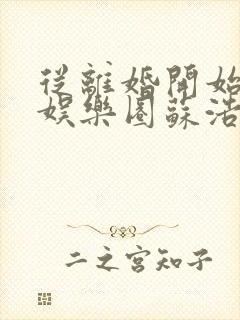 從離婚開始
娛樂圈蘇浩
二之宮知子